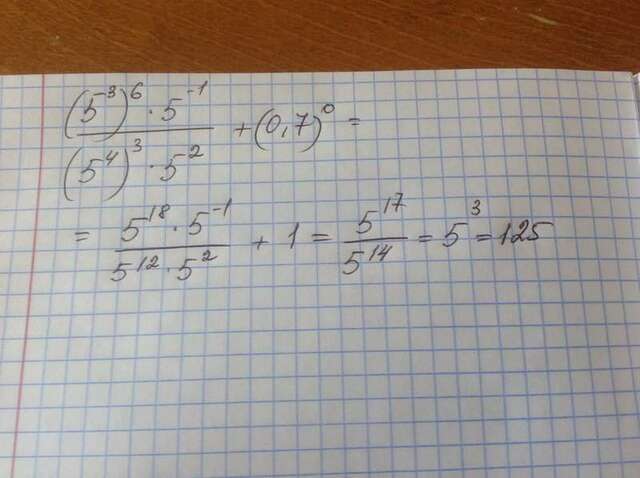 (5⁻³)⁶ · 5⁻¹ / (5⁴)³ · 5² + (0,7)⁰ =
= 5¹⁸ · 5⁻¹ / 5¹² · 5² + 1 = 5¹⁷ / 5¹⁴ = 5³ = 125